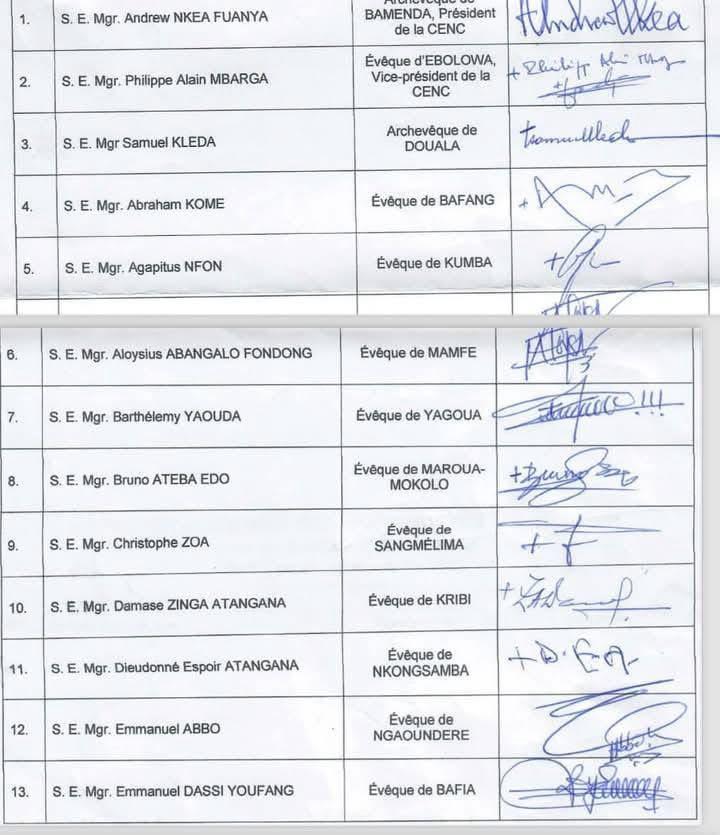 1. S. E. Mgr. Andrew NKEA FUANYA
Archevêque de
BAMENDA, Président
de la CENC
+Andrew Nkea
2. S. E. Mgr. Philippe Alain MBARGA
Évêque d'EBOLOWA,
Vice-président de la
CENC
3. S. E. Mgr Samuel KLEDA
Archevêque de
DOUALA
4. S. E. Mgr. Abraham KOME
Évêque de BAFANG
5. S. E. Mgr. Agapitus NFON
Évêque de KUMBA
6. S. E. Mgr. Aloysius ABANGALO FONDONG
Évêque de MAMFE
7. S. E. Mgr. Barthélemy YAOUDA
Évêque de YAGOUA
8. S. E. Mgr. Bruno ATEBA EDO
Évêque de MAROUA-
MOKOLO
9. S. E. Mgr. Christophe ZOA
Évêque de
SANGMÉLIMA
10. S. E. Mgr. Damase ZINGA ATANGANA
Évêque de KRIBI
11. S. E. Mgr. Dieudonné Espoir ATANGANA
Évêque de
NKONGSAMBA
+ D. E. A.
12. S. E. Mgr. Emmanuel ABBO
Évêque de
NGAOUNDERE
13. S. E. Mgr. Emmanuel DASSI YOUFANG
Évêque de BAFIA